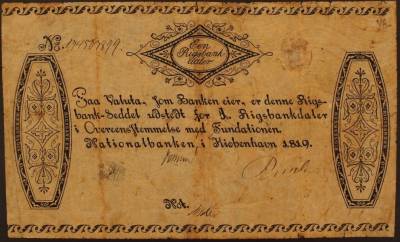 No.
Een
Rigsbank
daler
Paa Valuta, som Banken eier, er denne Rigs-
bank-Seddel udstedt for 1. Rigsbankdaler
i Overeensstemmelse med Fundationen.
Nationalbanken i Kiøbenhavn 1819.
Not.